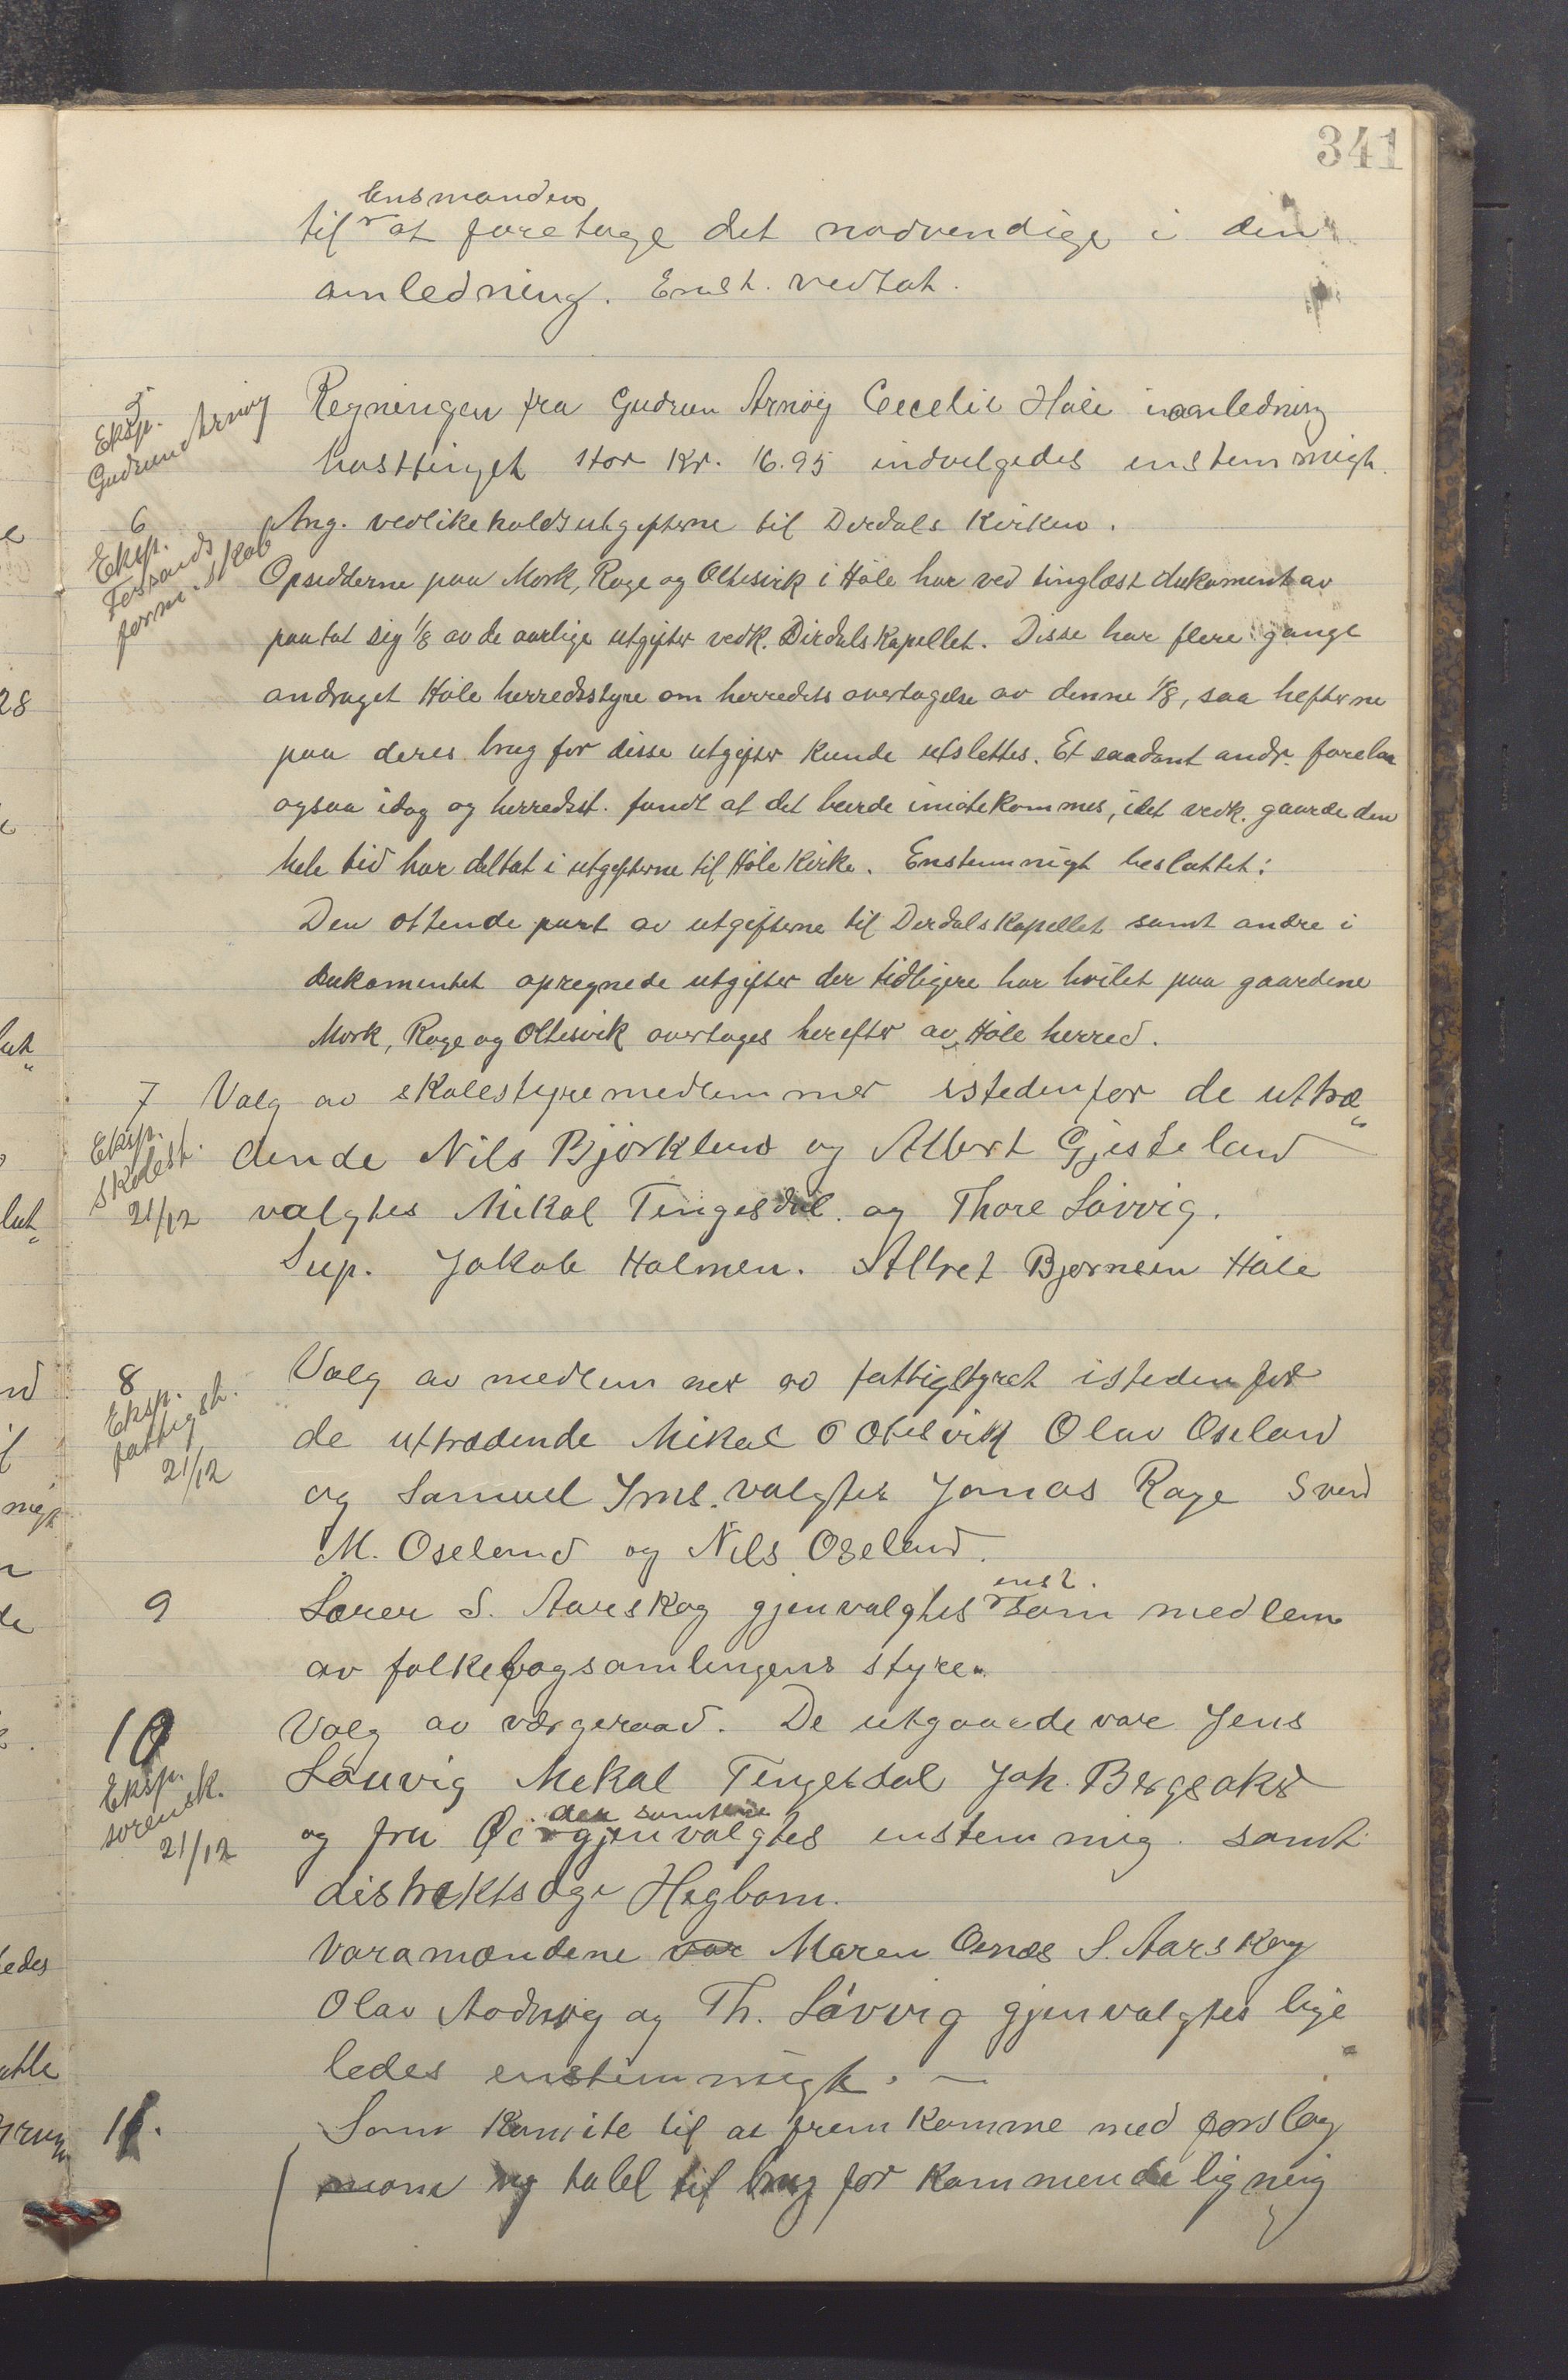 341
lensmanden
til at foretage det nødvendige i den
anledning. Enst. vedtat.
5
Eksp.
Gudrun Arnøy
Regningen fra Gudrun Arnøy Cecelie Høle i anledning
høsttinget stor kr. 16.95 indvilgedes enstemmigt.
6
Eksp.
Forsands
formskab
Ang. vedlikeholdsutgifterne til Dirdals kirken.
Opsidderne paa Mørk, Rage og Oltesvik i Høle har ved tinglæst dokument av
paatat sig 1/8 av de aarlige utgifter vedk. Dirdalskapellet. Disse har flere gange
andraget Høle herredsstyre om herredets overtagelse av denne 1/8, saa hefterne
paa deres brug for disse utgifter kunde utslettes. Et saadant andr. forelaa
ogsaa idag og herredsst. fandt at det burde imøtekommes, idet vedk. gaarde den
hele tid har deltat i utgifterne til Høle kirke. Enstemmigt besluttet:
Den ottende part av utgifterne til Dirdalskapellet samt andre i
dokumentet opregnede utgifter der tidligere har hvilet paa gaardene
Mørk, Rage og Oltesvik overtages herefter av Høle herred.
7
Eksp.
skolest.
21/12
Valg av skolestyremedlemmer istedenfor de uttræ"
dende Nils Bjørklund og Albert Gjesteland
valgtes Mikal Tingesdal og Thore Løvvig.
Sup. Jakob Holmen. Alfret Bjørnsen Høle
8
Eksp.
fattigst.
21/12
Valg av medlemmer av fattigstyret istedenfor
de uttrædende Mikal O Oltesvik Olav Oseland
og Samuel Ims. valgtes Jonas Rage Svend
M. Oseland og Nils Oseland.
9
enst.
Lærer S. Aarskog gjenvalgtes som medlem
av folkebogsamlingens styre.
10
Eksp.
sorensk.
21/12
Valg av værgeraad. De utgaaede var Jens
Løuvig Mikal Tingesdal Joh. Bergsaker
den samtlige
og fru Øi gjenvalgtes enstemmig. samt
distriktslæge Hegbom.
Varamændene var Maren Osnes S. Aarskog
Olav Aadnøy og Th. Løvvig gjenvalgtes lige
ledes enstemmigt. —
11.
Som komite til at fremkomme med forslag
tabel til brug for kommende ligning